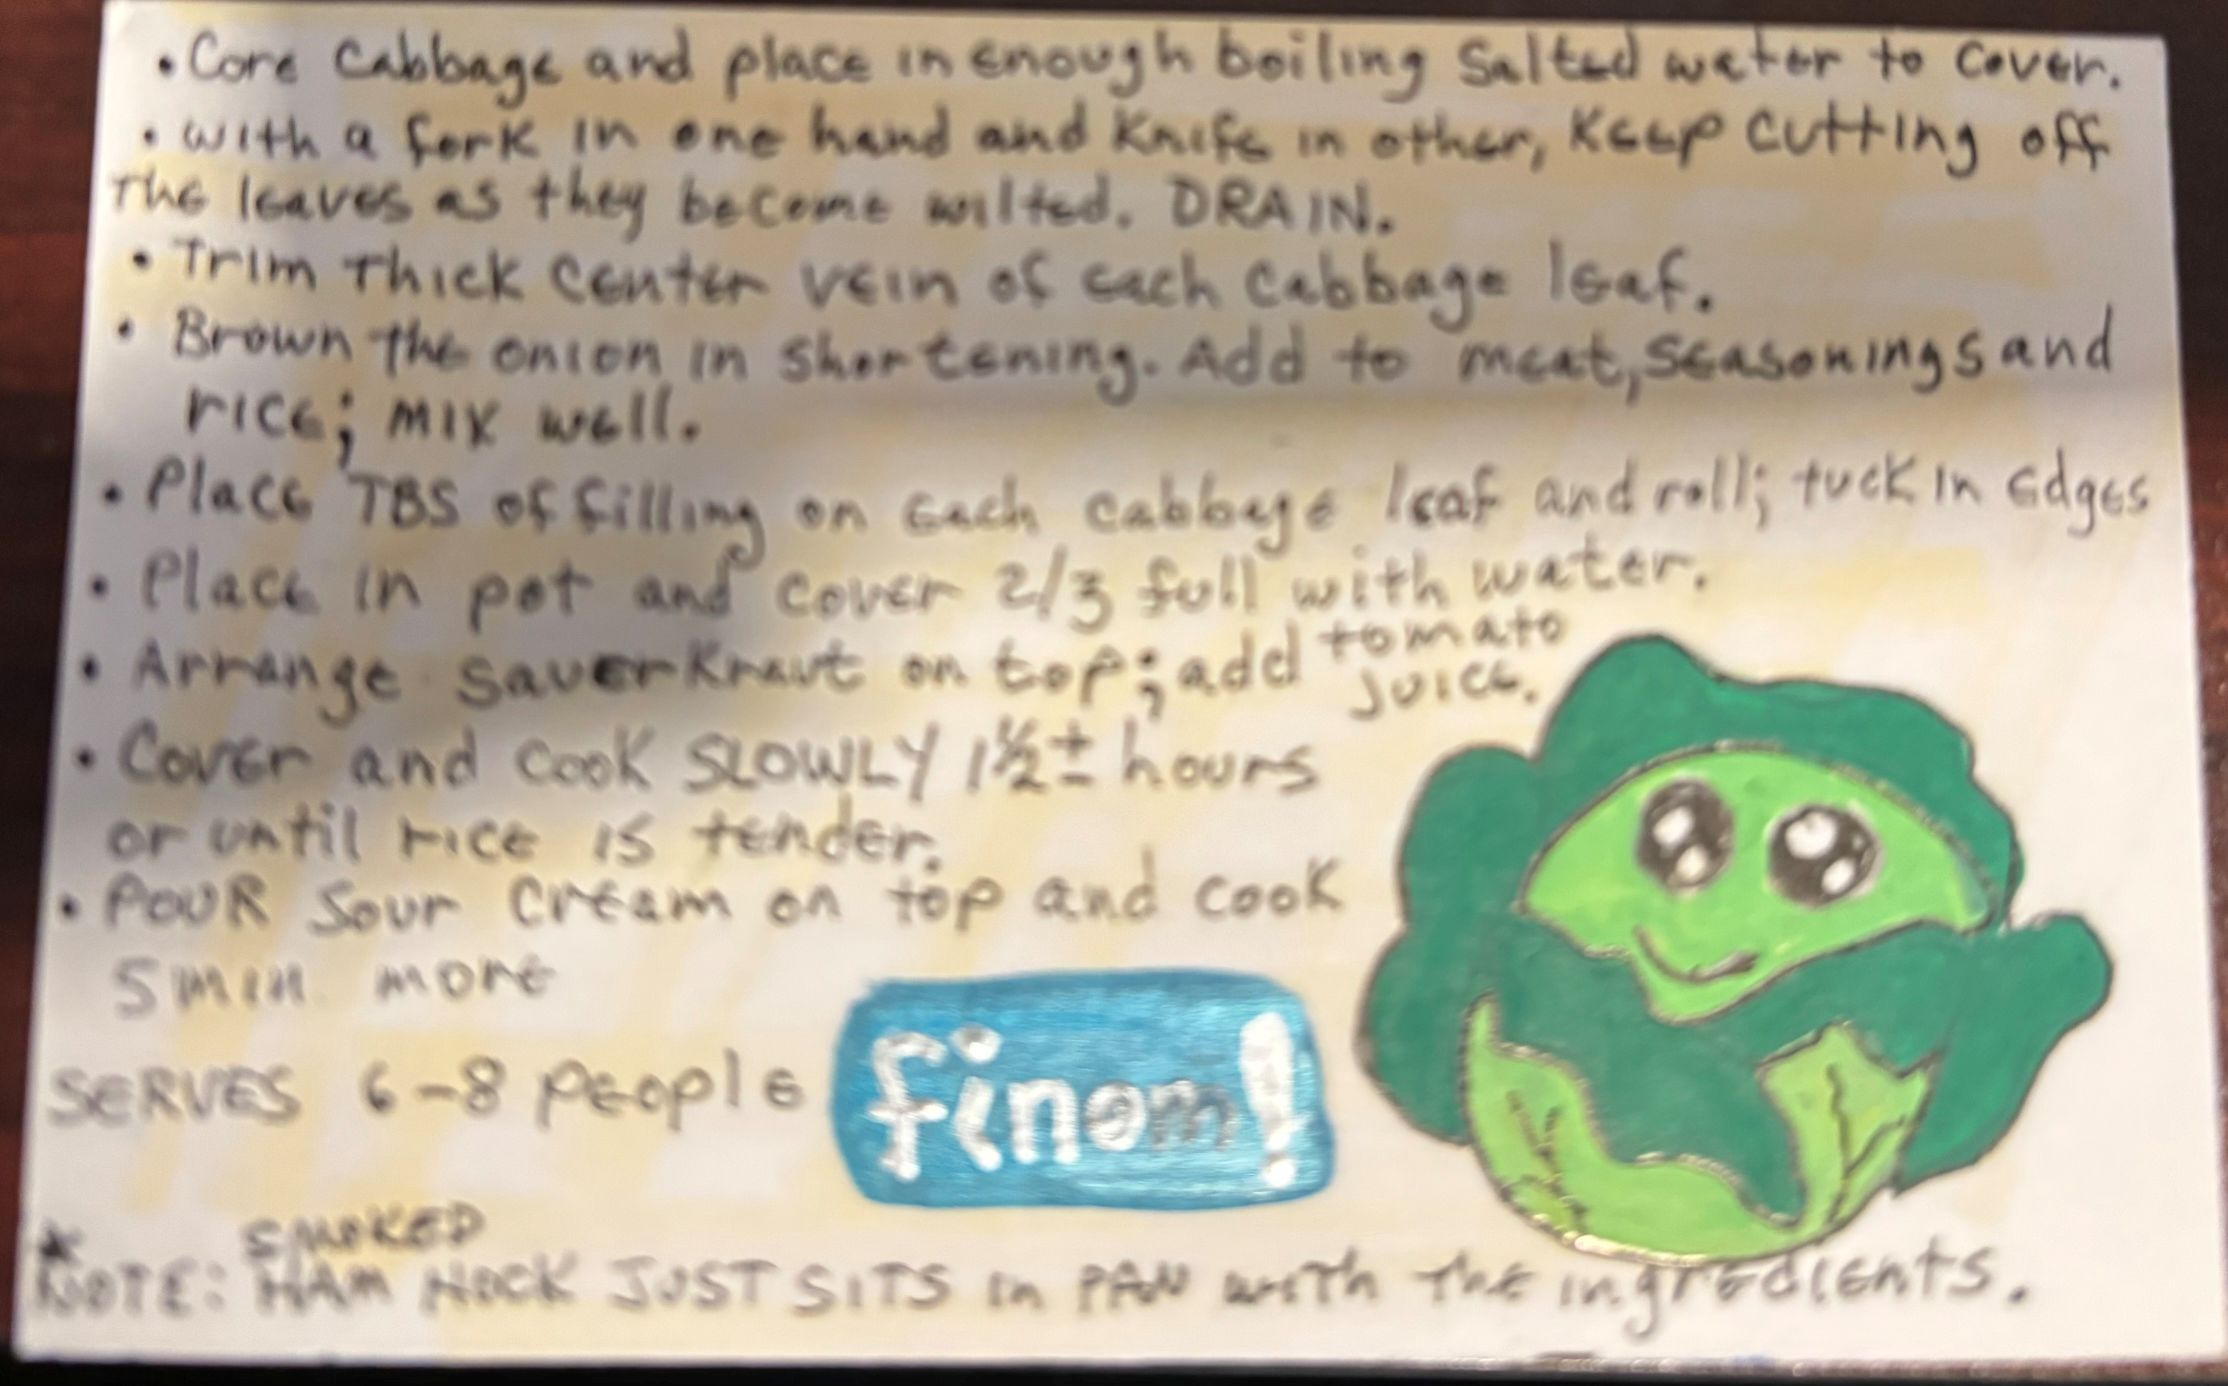 • Core Cabbage and place in enough boiling Salted water to cover.
• with a fork in one hand and knife in other, Keep cutting off
The leaves as they become wilted. DRAIN.
• Trim Thick center vein of each cabbage leaf.
• Brown the onion in shortening. Add to meat, seasonings and
rice; mix well.
• Place TBS of filling on each cabbage leaf and roll; tuck in edges
• Place in pot and cover 2/3 full with water.
• Arrange sauerkraut on top; add tomato
juice.
• Cover and cook SLOWLY 1½ ± hours
or until rice is tender.
• POUR Sour Cream on top and cook
5 min more
SERVES 6-8 people
finom!
SMOKED
* NOTE: HAM HOCK JUST SITS in PAN with the ingredients.